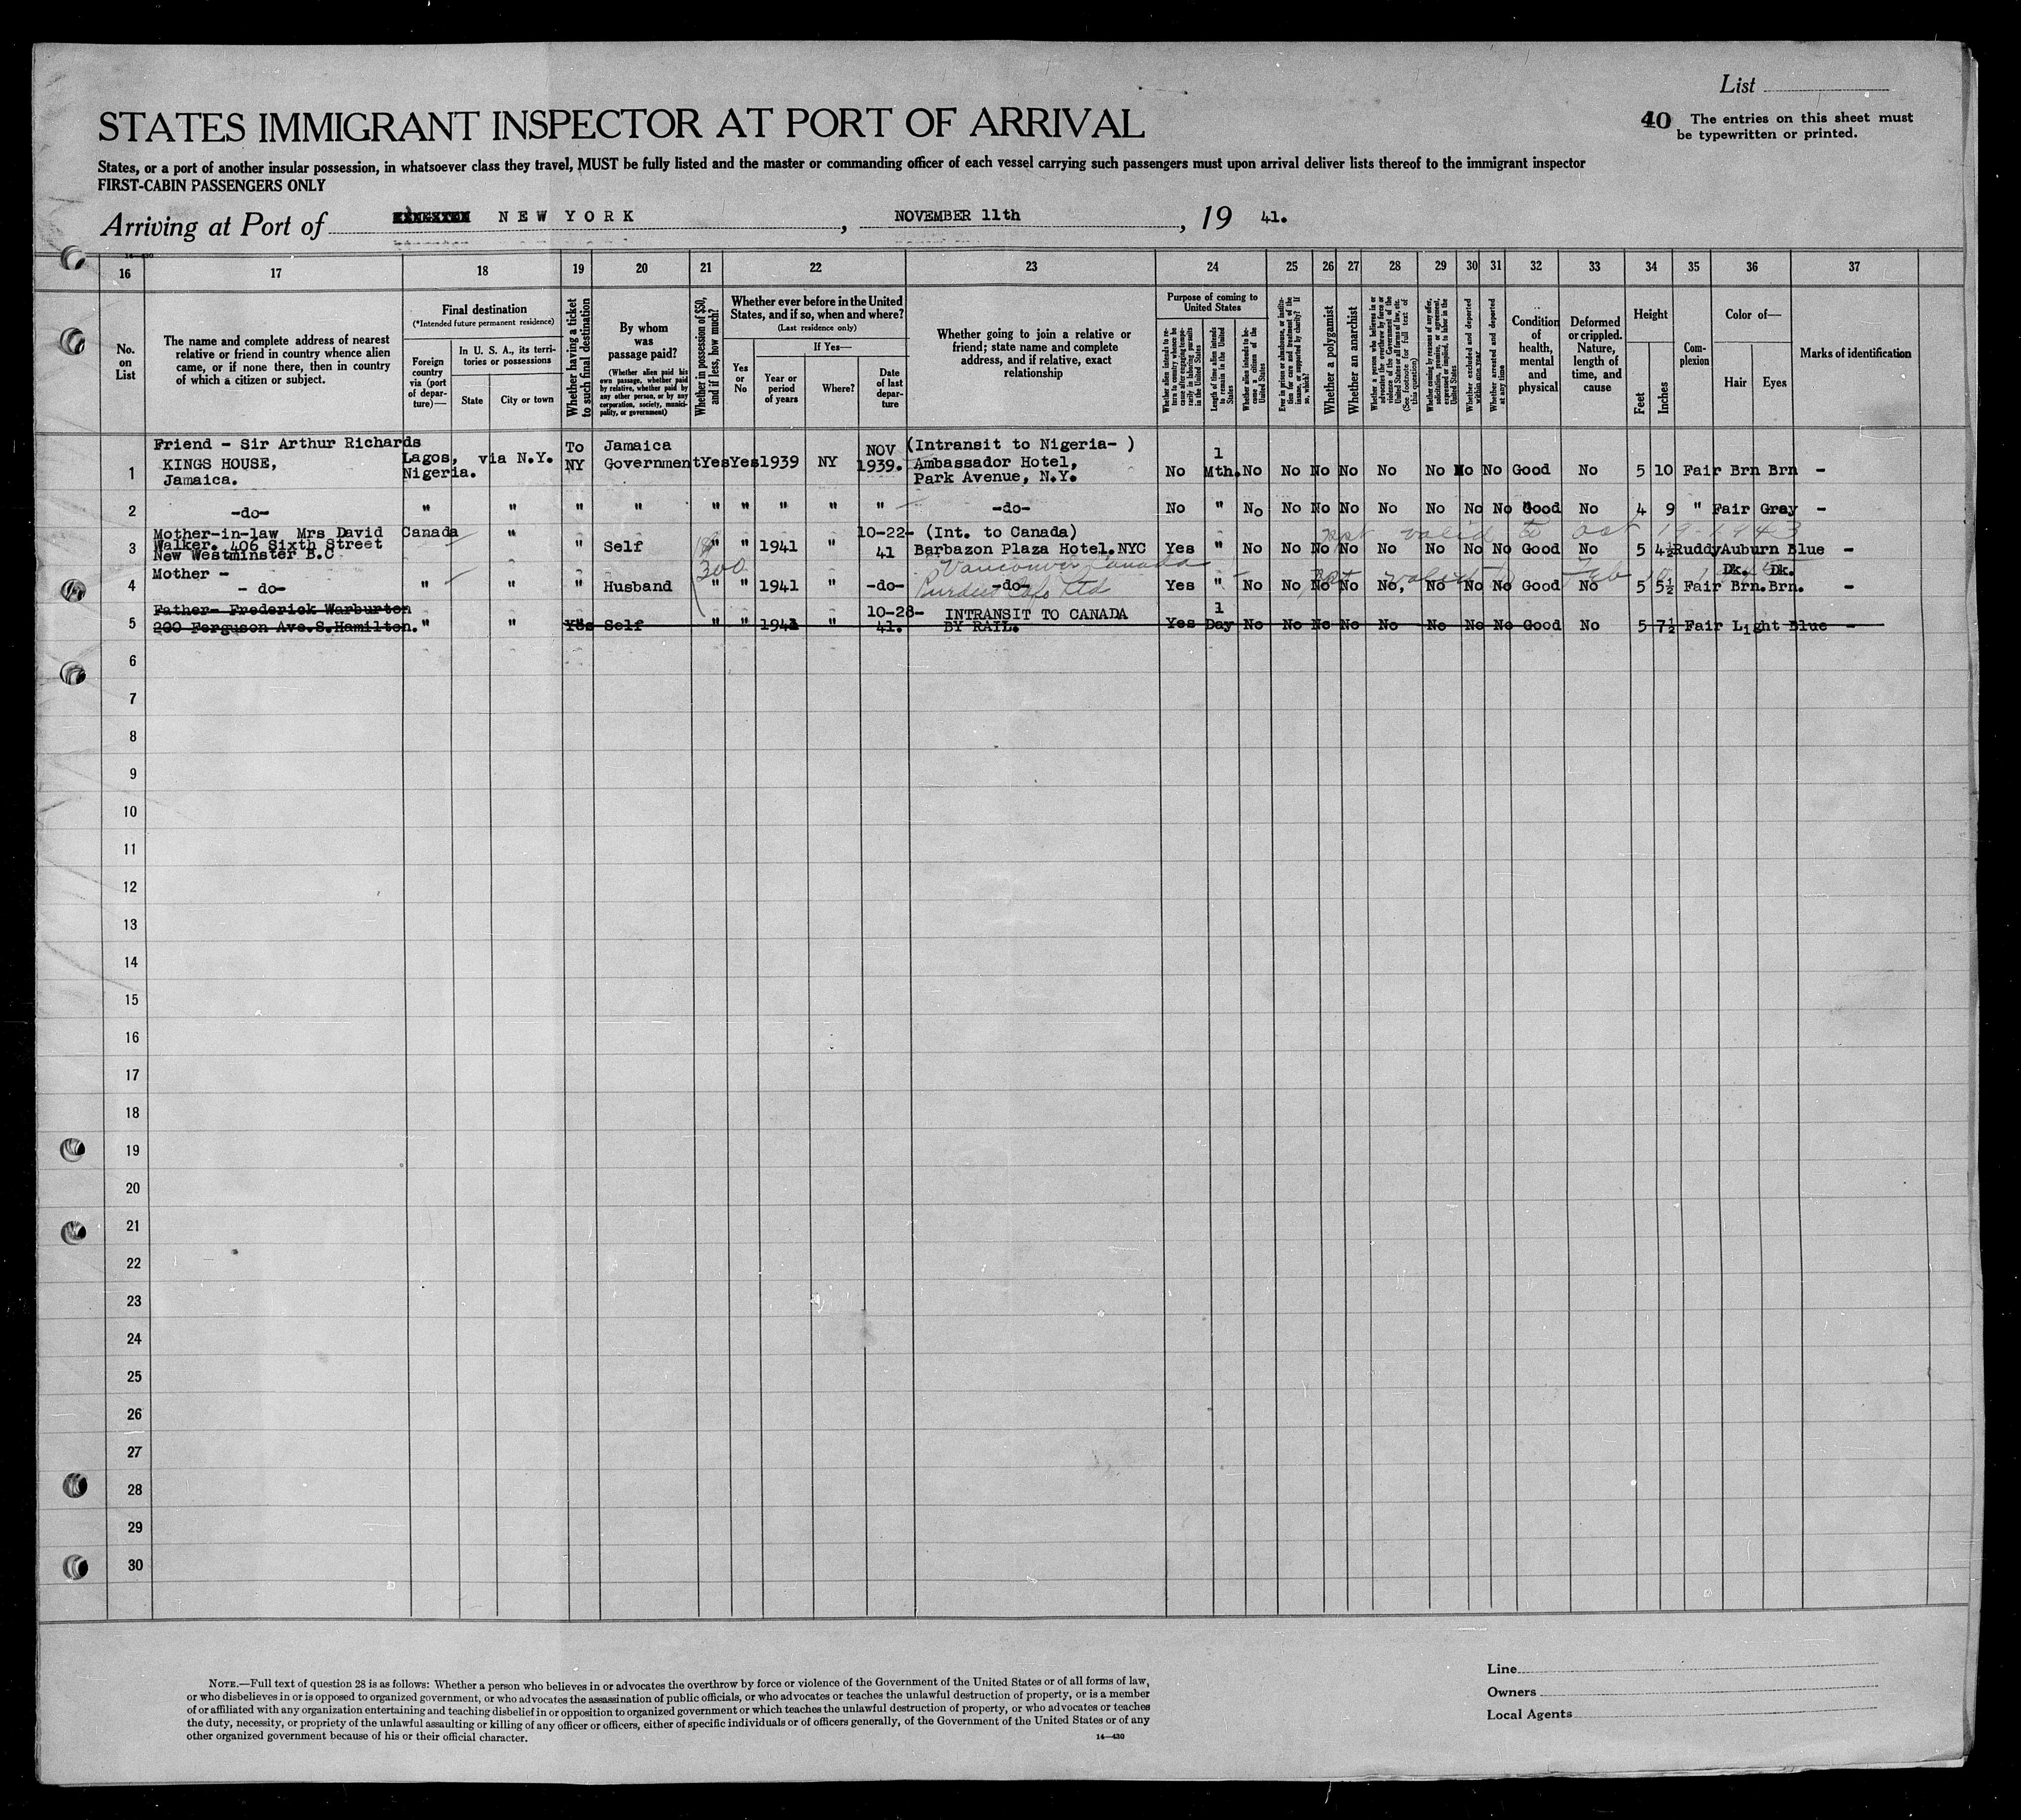 List
40 The entries on this sheet must
be typewritten or printed.
STATES IMMIGRANT INSPECTOR AT PORT OF ARRIVAL
States, or a port of another insular possession, in whatsoever class they travel, MUST be fully listed and the master or commanding officer of each vessel carrying such passengers must upon arrival deliver lists thereof to the immigrant inspector
FIRST-CABIN PASSENGERS ONLY
Arriving at Port of NEW YORK, NOVEMBER 11th, 19 41.
16 17 18 19 20 21 22 23 24 25 26 27 28 29 30 31 32 33 34 35 36 37
No. on List
The name and complete address of nearest
relative or friend in country whence alien
came, or if none there, then in country
of which a citizen or subject.
Final destination
(*Intended future permanent residence)
Foreign country via (port of departure)—
In U. S. A., its territories or possessions
State
City or town
Whether having a ticket to such final destination
By whom was passage paid?
(Whether alien paid his own passage, whether paid by relative, whether paid by any other person, or by any corporation, society, municipality, or government)
Whether in possession of $50, and if less, how much?
Whether ever before in the United States, and if so, when and where?
(Last residence only)
Yes or No
If Yes—
Year or period of years
Where?
Date of last departure
Whether going to join a relative or
friend; state name and complete
address, and if relative, exact
relationship
Purpose of coming to United States
Whether alien intends to return to country whence he came after engaging temporarily in laboring pursuits in the United States
Length of time alien intends to remain in the United States
Whether alien intends to become a citizen of the United States
Ever in prison or almshouse, or institution for care and treatment of the insane, or supported by charity? If so, which?
Whether a polygamist
Whether an anarchist
Whether a person who believes in or advocates the overthrow by force or violence of the Government of the United States or all forms of law, etc. (See footnote for full text of this question)
Whether coming by reason of any offer, solicitation, promise, or agreement, expressed or implied, to labor in the United States
Whether excluded and deported within one year
Whether arrested and deported at any time
Condition of health, mental and physical
Deformed or crippled. Nature, length of time, and cause
Height
Feet
Inches
Complexion
Color of—
Hair
Eyes
Marks of identification
1 Friend - Sir Arthur Richards KINGS HOUSE, Jamaica. Lagos, Nigeria. via N.Y. To NY Jamaica Government Yes Yes 1939 NY NOV 1939. (Intransit to Nigeria- ) Ambassador Hotel, Park Avenue, N.Y. No 1 Mth. No No No No No No No No Good No 5 10 Fair Brn Brn -
2 -do- " " " " " " " " " -do- No " No No No No No No No No Good No 4 9 " Fair Gray -
3 Mother-in-law Mrs David Walker. 406 Sixth Street New Westminster B.C Canada " " Self " " 1941 " 10-22-41 (Int. to Canada) Barbazon Plaza Hotel.NYC Yes " No No No No No No No No Good No 5 4½ Ruddy Auburn Blue -
valid to Oct 19-1943
300
Vancouver Canada
4 Mother - - do- " " " Husband " " 1941 " -do- -do- Yes " No No No No No, No No No Good No 5 5½ Fair Dk. Brn. Dk. Brn. -
5 Father- Frederick Warburton 200 Ferguson Ave.S.Hamilton. " " Yes Self " " 1941 " 10-28-41. INTRANSIT TO CANADA BY RAIL. Yes 1 Day No No No No No No No No Good No 5 7½ Fair Light Blue -
6
7
8
9
10
11
12
13
14
15
16
17
18
19
20
21
22
23
24
25
26
27
28
29
30
NOTE.—Full text of question 28 is as follows: Whether a person who believes in or advocates the overthrow by force or violence of the Government of the United States or of all forms of law,
or who disbelieves in or is opposed to organized government, or who advocates the assassination of public officials, or who advocates or teaches the unlawful destruction of property, or is a member
of or affiliated with any organization entertaining and teaching disbelief in or opposition to organized government or which teaches the unlawful destruction of property, or who advocates or teaches
the duty, necessity, or propriety of the unlawful assaulting or killing of any officer or officers, either of specific individuals or of officers generally, of the Government of the United States or of any
other organized government because of his or their official character.
14—430
Line
Owners
Local Agents